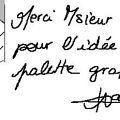 Merci Msieur
pour l'idée
palette gra